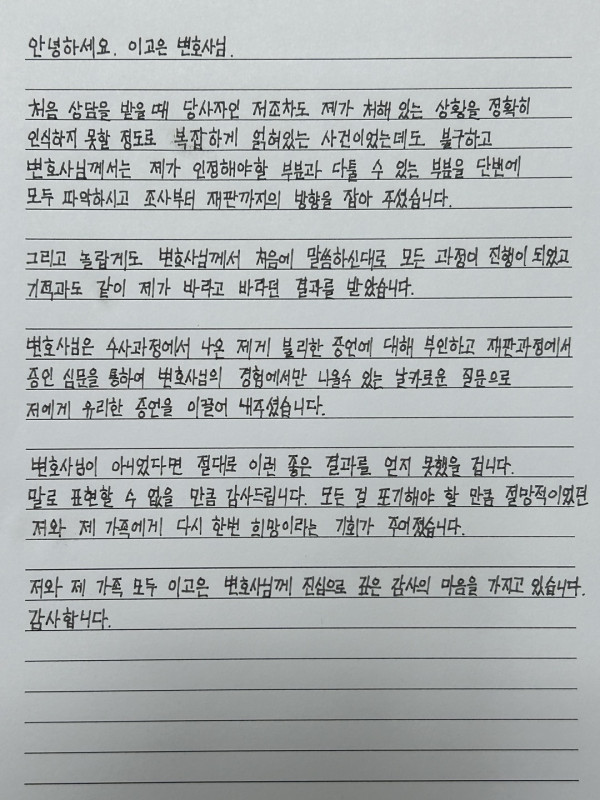 안녕하세요. 이고은 변호사님.
처음 상담을 받을 때 당사자인 저조차도 제가 처해 있는 상황을 정확히
인식하지 못할 정도로 복잡하게 얽혀있는 사건이었는데도 불구하고
변호사님께서는 제가 인정해야할 부분과 다툴 수 있는 부분을 단번에
모두 파악하시고 조사부터 재판까지의 방향을 잡아 주셨습니다.
그리고 놀랍게도 변호사님께서 처음에 말씀하신대로 모든 과정이 진행이 되었고
기적과도 같이 제가 바라고 바라던 결과를 받았습니다.
변호사님은 수사과정에서 나온 제게 불리한 증언에 대해 부인하고 재판과정에서
증인 심문을 통하여 변호사님의 경험에서만 나올수 있는 날카로운 질문으로
저에게 유리한 증언을 이끌어 내주셨습니다.
변호사님이 아니었다면 절대로 이런 좋은 결과를 얻지 못했을 겁니다.
말로 표현할 수 없을 만큼 감사드립니다. 모든 걸 포기해야 할 만큼 절망적이었던
저와 제 가족에게 다시 한번 희망이라는 기회가 주어졌습니다.
저와 제 가족 모두 이고은 변호사님께 진심으로 깊은 감사의 마음을 가지고 있습니다.
감사합니다.